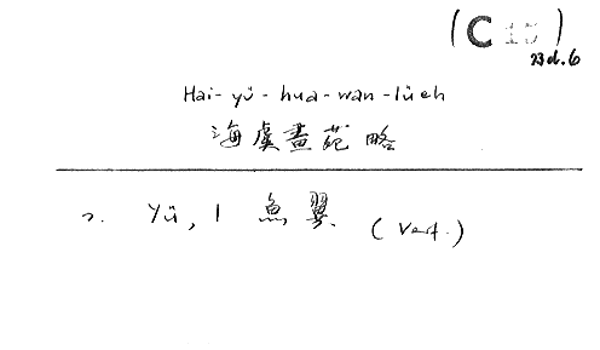 (C 15)
23d.6
Hai-yü-hua-wan-lüeh
海虞畫苑略
2. Yü, I 魚翼 (Verf.)